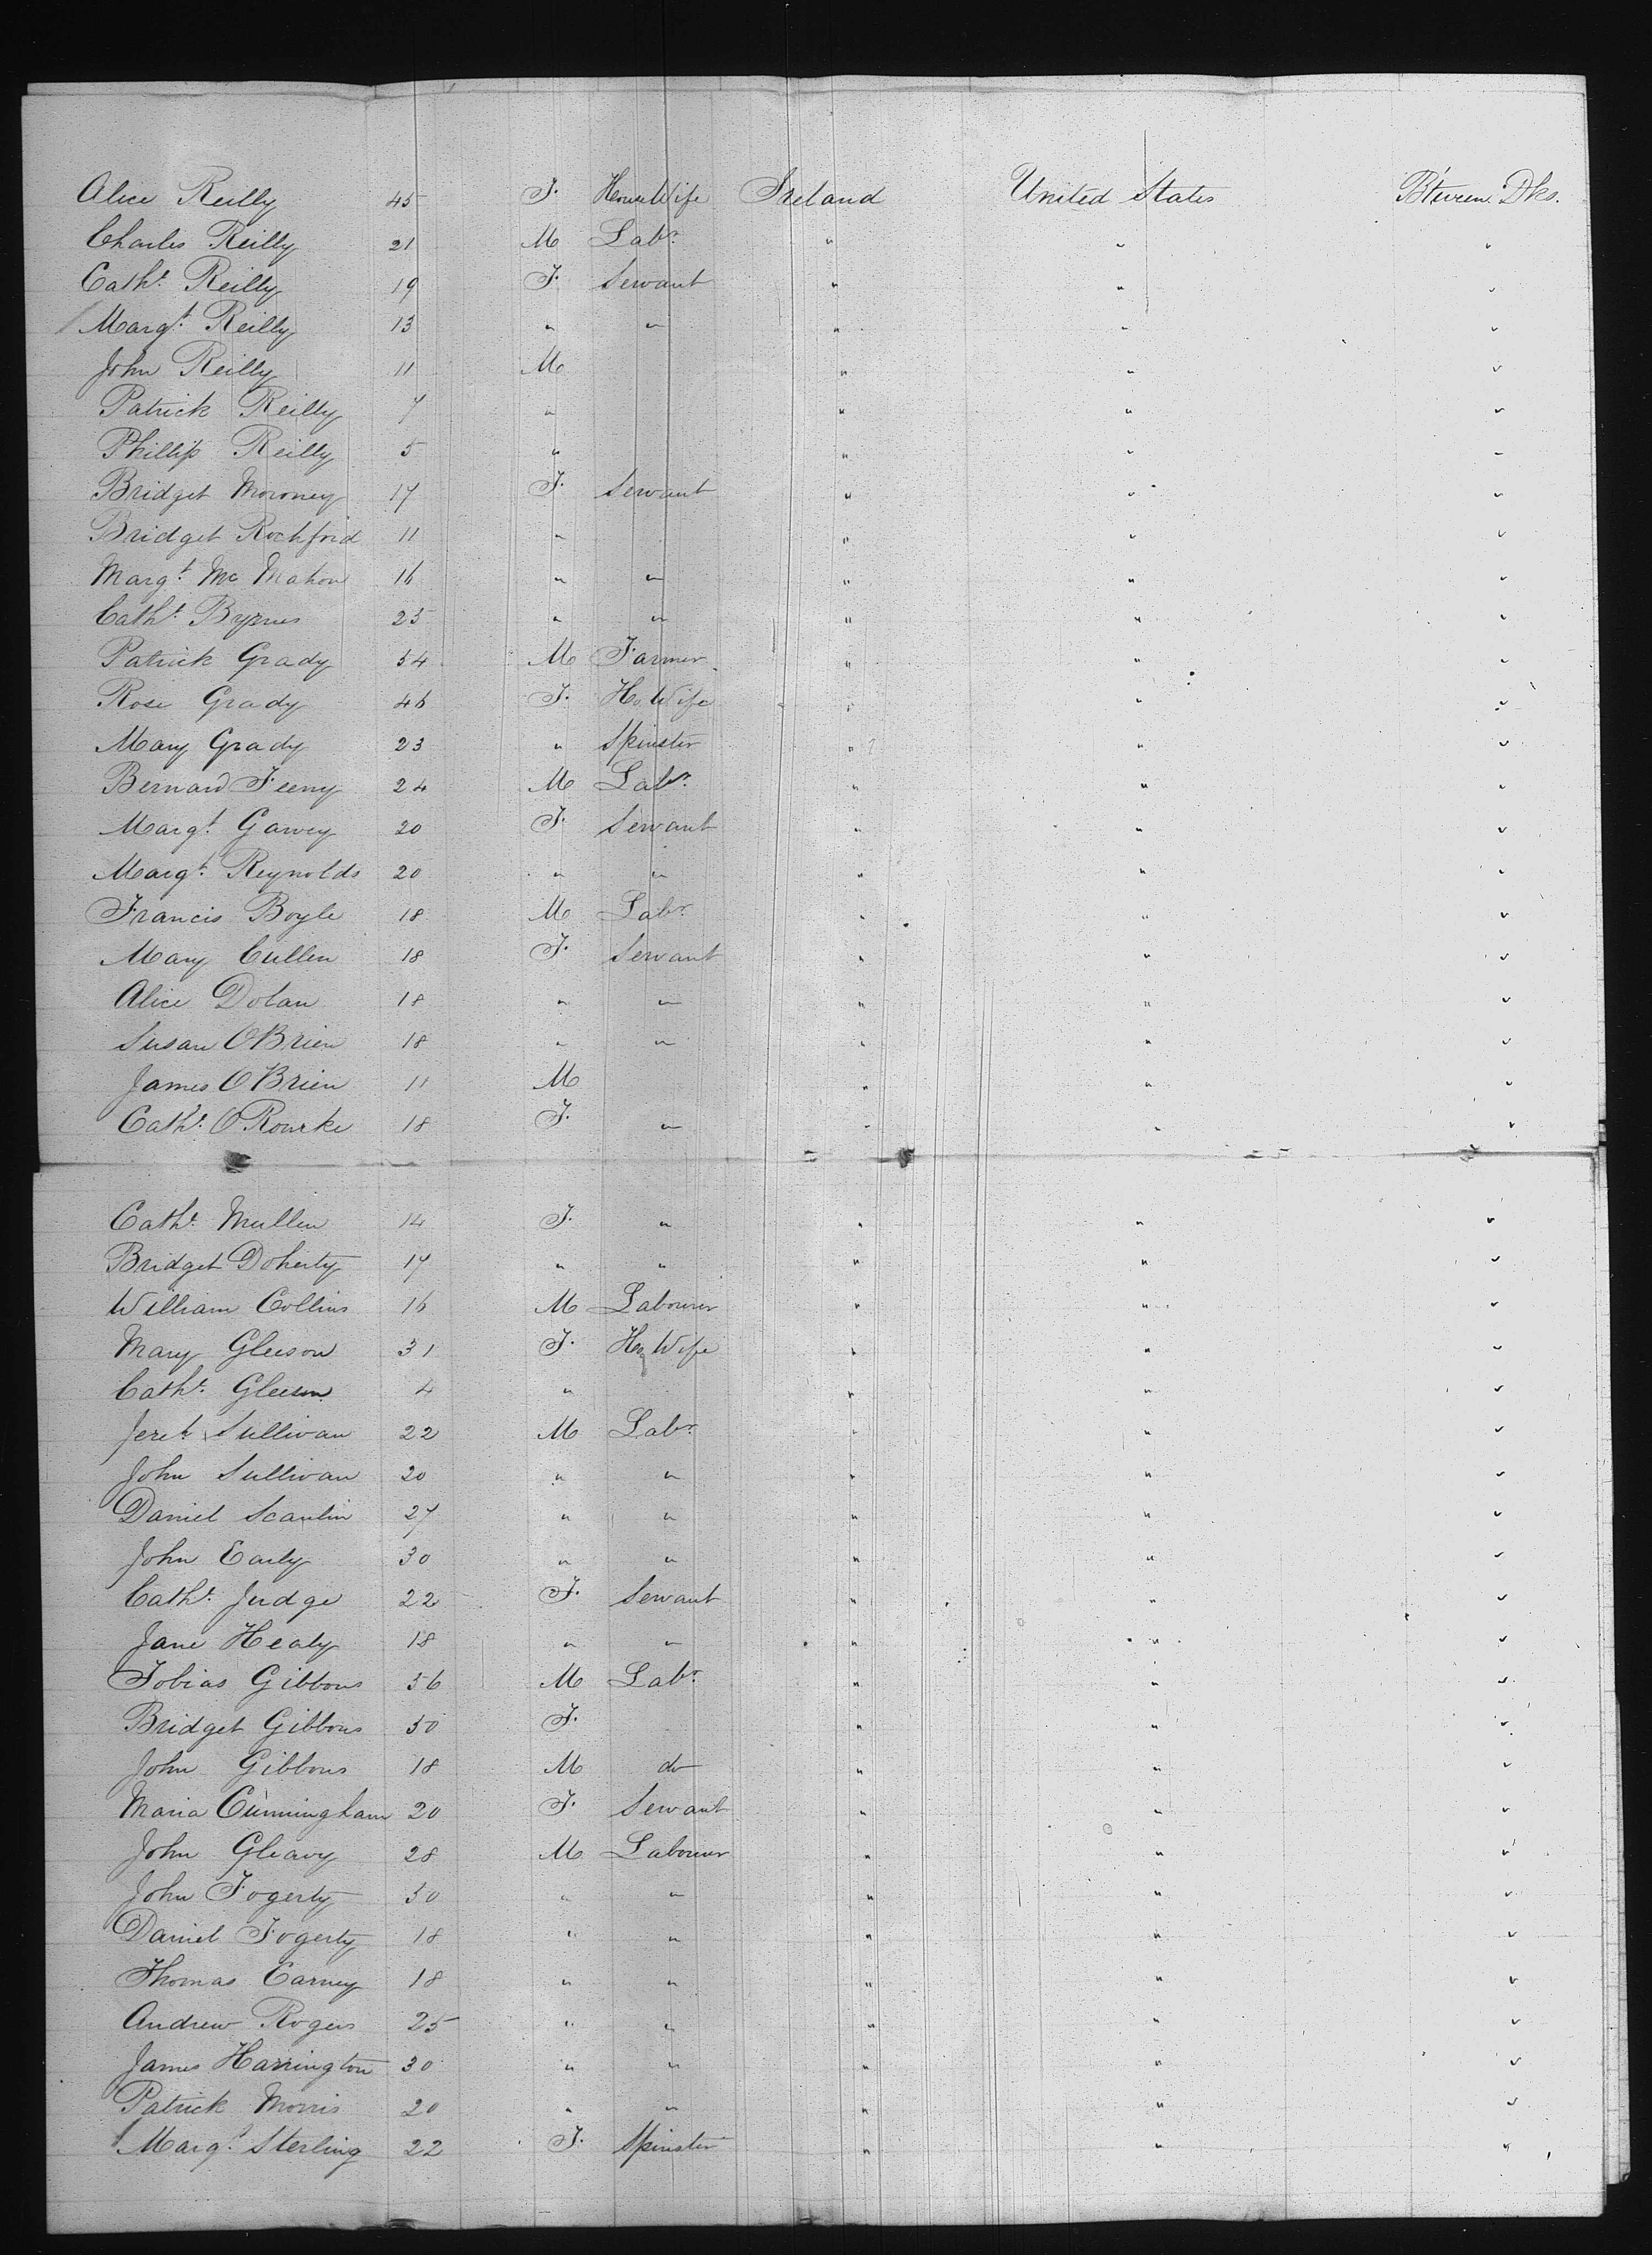 Alice Reilly 45 F. House Wife Ireland United States Btween Dks.
Charles Reilly 21 M Labr. " " "
Catht. Reilly 19 F. Servant " " "
Margt. Reilly 13 " " " " "
John Reilly 11 M " " "
Patrick Reilly 7 " " " "
Phillip Reilly 5 " " " "
Bridget Moroney 17 F. Servant " " "
Bridget Rochford 11 " " " "
Margt. Mc Mahon 16 " " " " "
Catht. Byrnes 25 " " " " "
Patrick Grady 54 M Farmer " " "
Rose Grady 46 F. Ho. Wife " " "
Mary Grady 23 " Spinster " " "
Bernard Feeny 24 M Labr. " " "
Margt. Garvey 20 F. Servant " " "
Margt. Reynolds 20 " " " " "
Francis Boyle 18 M Labr. " " "
Mary Cullen 18 F. Servant " " "
Alice Dolan 18 " " " " "
Susan OBrien 18 " " " " "
James OBrien 11 M " " "
Catht. O'Rourke 18 F. " " " "
Catht. Mullen 14 F. " " " "
Bridget Doherty 17 " " " " "
William Collins 16 M Labourer " " "
Mary Gleeson 31 F. Ho Wife " " "
Catht. Gleeson 4 " " " "
Jereh. Sullivan 22 M Labr. " " "
John Sullivan 20 " " " " "
Daniel Scanlin 27 " " " " "
John Early 30 " " " " "
Catht. Judge 22 F. Servant " " "
Jane Healy 18 " " " " "
Tobias Gibbons 56 M Labr. " " "
Bridget Gibbons 50 F. " " "
John Gibbons 18 M do " " "
Maria Cunningham 20 F. Servant " " "
John Gleavy 28 M Labourer " " "
John Fogerty 50 " " " " "
Daniel Fogerty 18 " " " " "
Thomas Carney 18 " " " " "
Andrew Rogers 25 " " " " "
James Harrington 30 " " " " "
Patrick Morris 20 " " " " "
Margt. Sterling 22 F. Spinster " " "